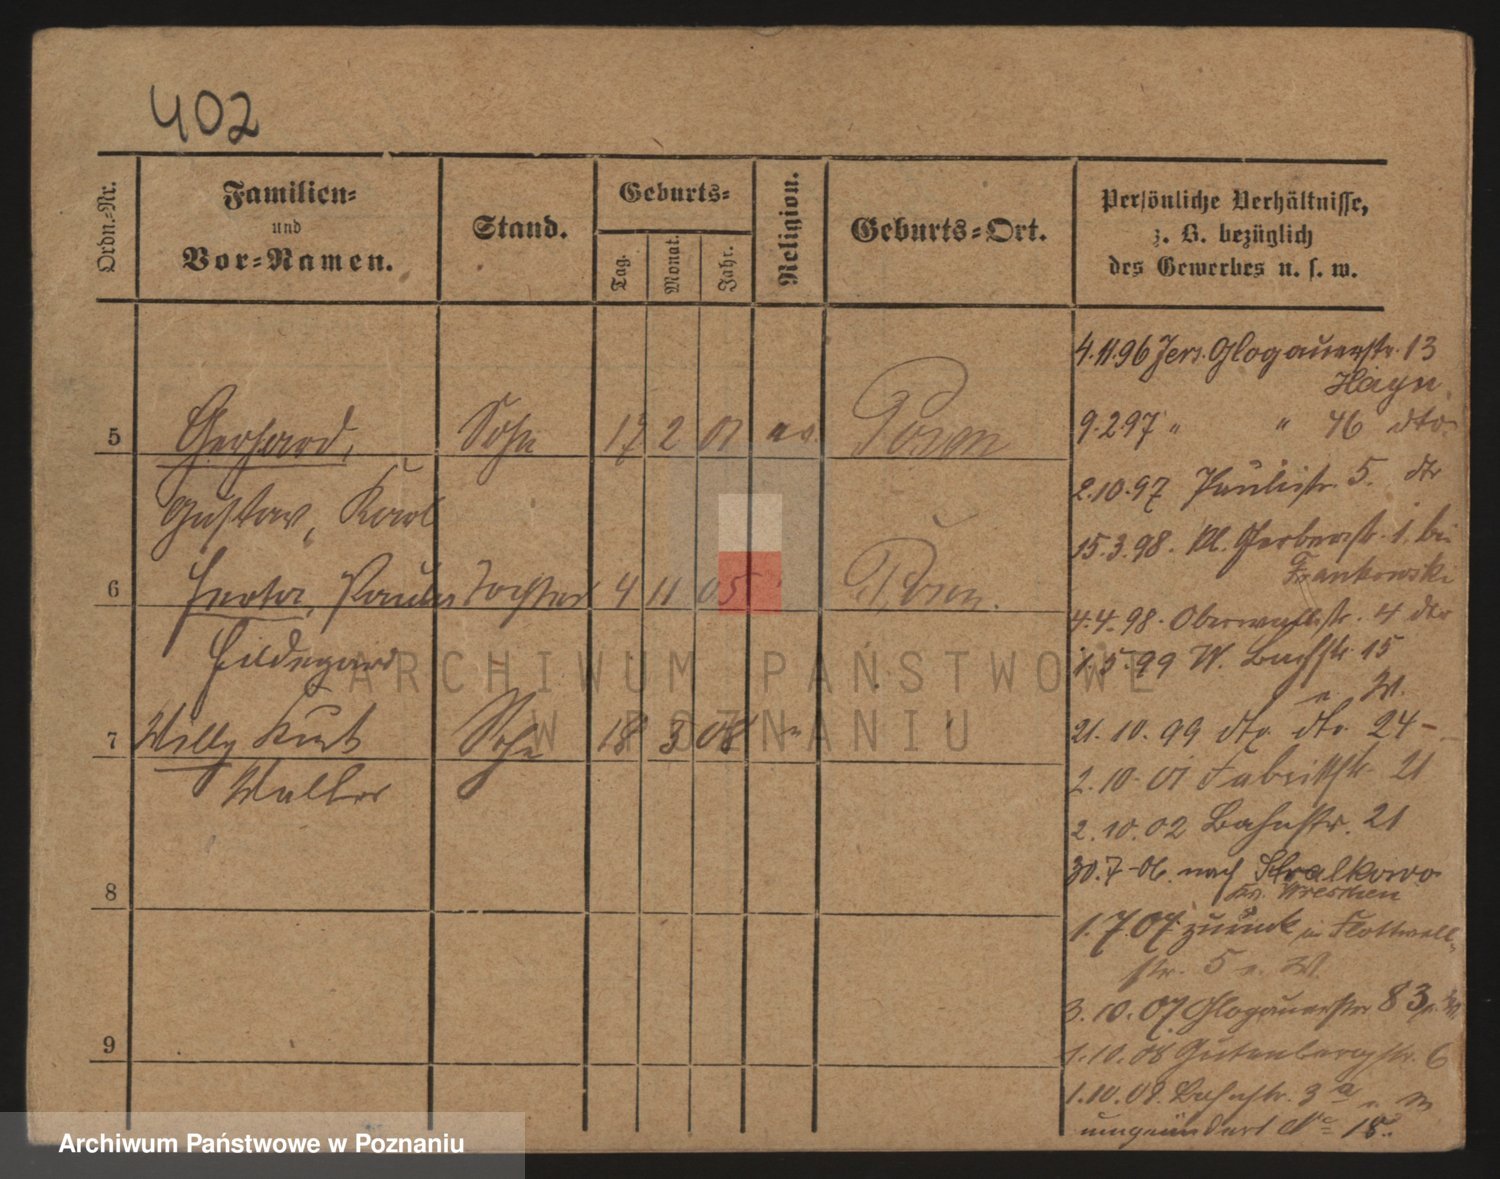 402
Ordn.-Nr.
Familien-
und
Vor-Namen.
Stand.
Geburts-
Tag.
Monat.
Jahr.
Religion.
Geburts-Ort.
Persönliche Verhältnisse,
z. B. bezüglich
des Gewerbes u. s. w.
5 Gerhard, Sohn 17 2 01 ev. Posen
Gustav, Karl
6 Herta, Paula Tochter 4 11 05 Posen.
Hildegard
7 Willy Kurt Sohn 18 3 08 "
Walter
8
9
4.11.96 Jers. Glogauerstr. 13
Hayn
9.2.97 " " 46 dto.
2.10.97 Paulistr. 5. dto
15.3.98. Kl. Gerberstr. 1. bei
Frankowski
4.4.98. Oberwallstr. 4 dto
1.5.99 W. Bachstr. 15
e. W.
21.10.99 dto. dto. 24
2.10.01 Fabrikstr. 21
2.10.02 Bahnstr. 21
30.7.06. nach Stralkowo
Kr. Wreschen
1.7.07. zurück in Flottwell-
str. 5 e. W.
3.10.07. Glogauerstr. 83 e. W.
1.10.08 Gutenbergstr. 6
1.10.09. Bahnstr. 3a e. W
umgeändert No 18.
ARCHIWUM PAŃSTWOWE
W POZNANIU
Archiwum Państwowe w Poznaniu